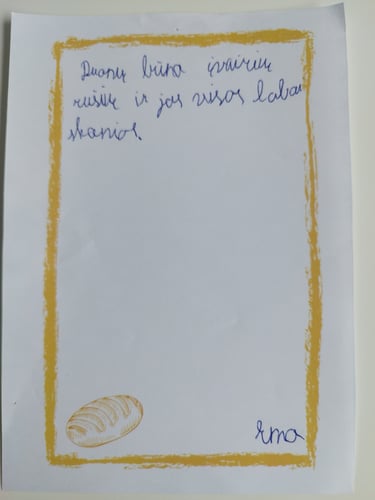 Duonų būna įvairių
rūšių ir jos visos labai
skanios.
Ema